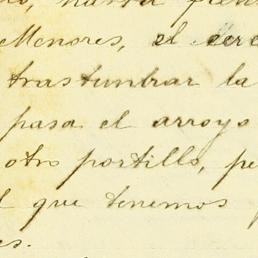 Menores, el
trastumbrar la
pasa el arroyo
otro portillo, pe
que tenemos
es.